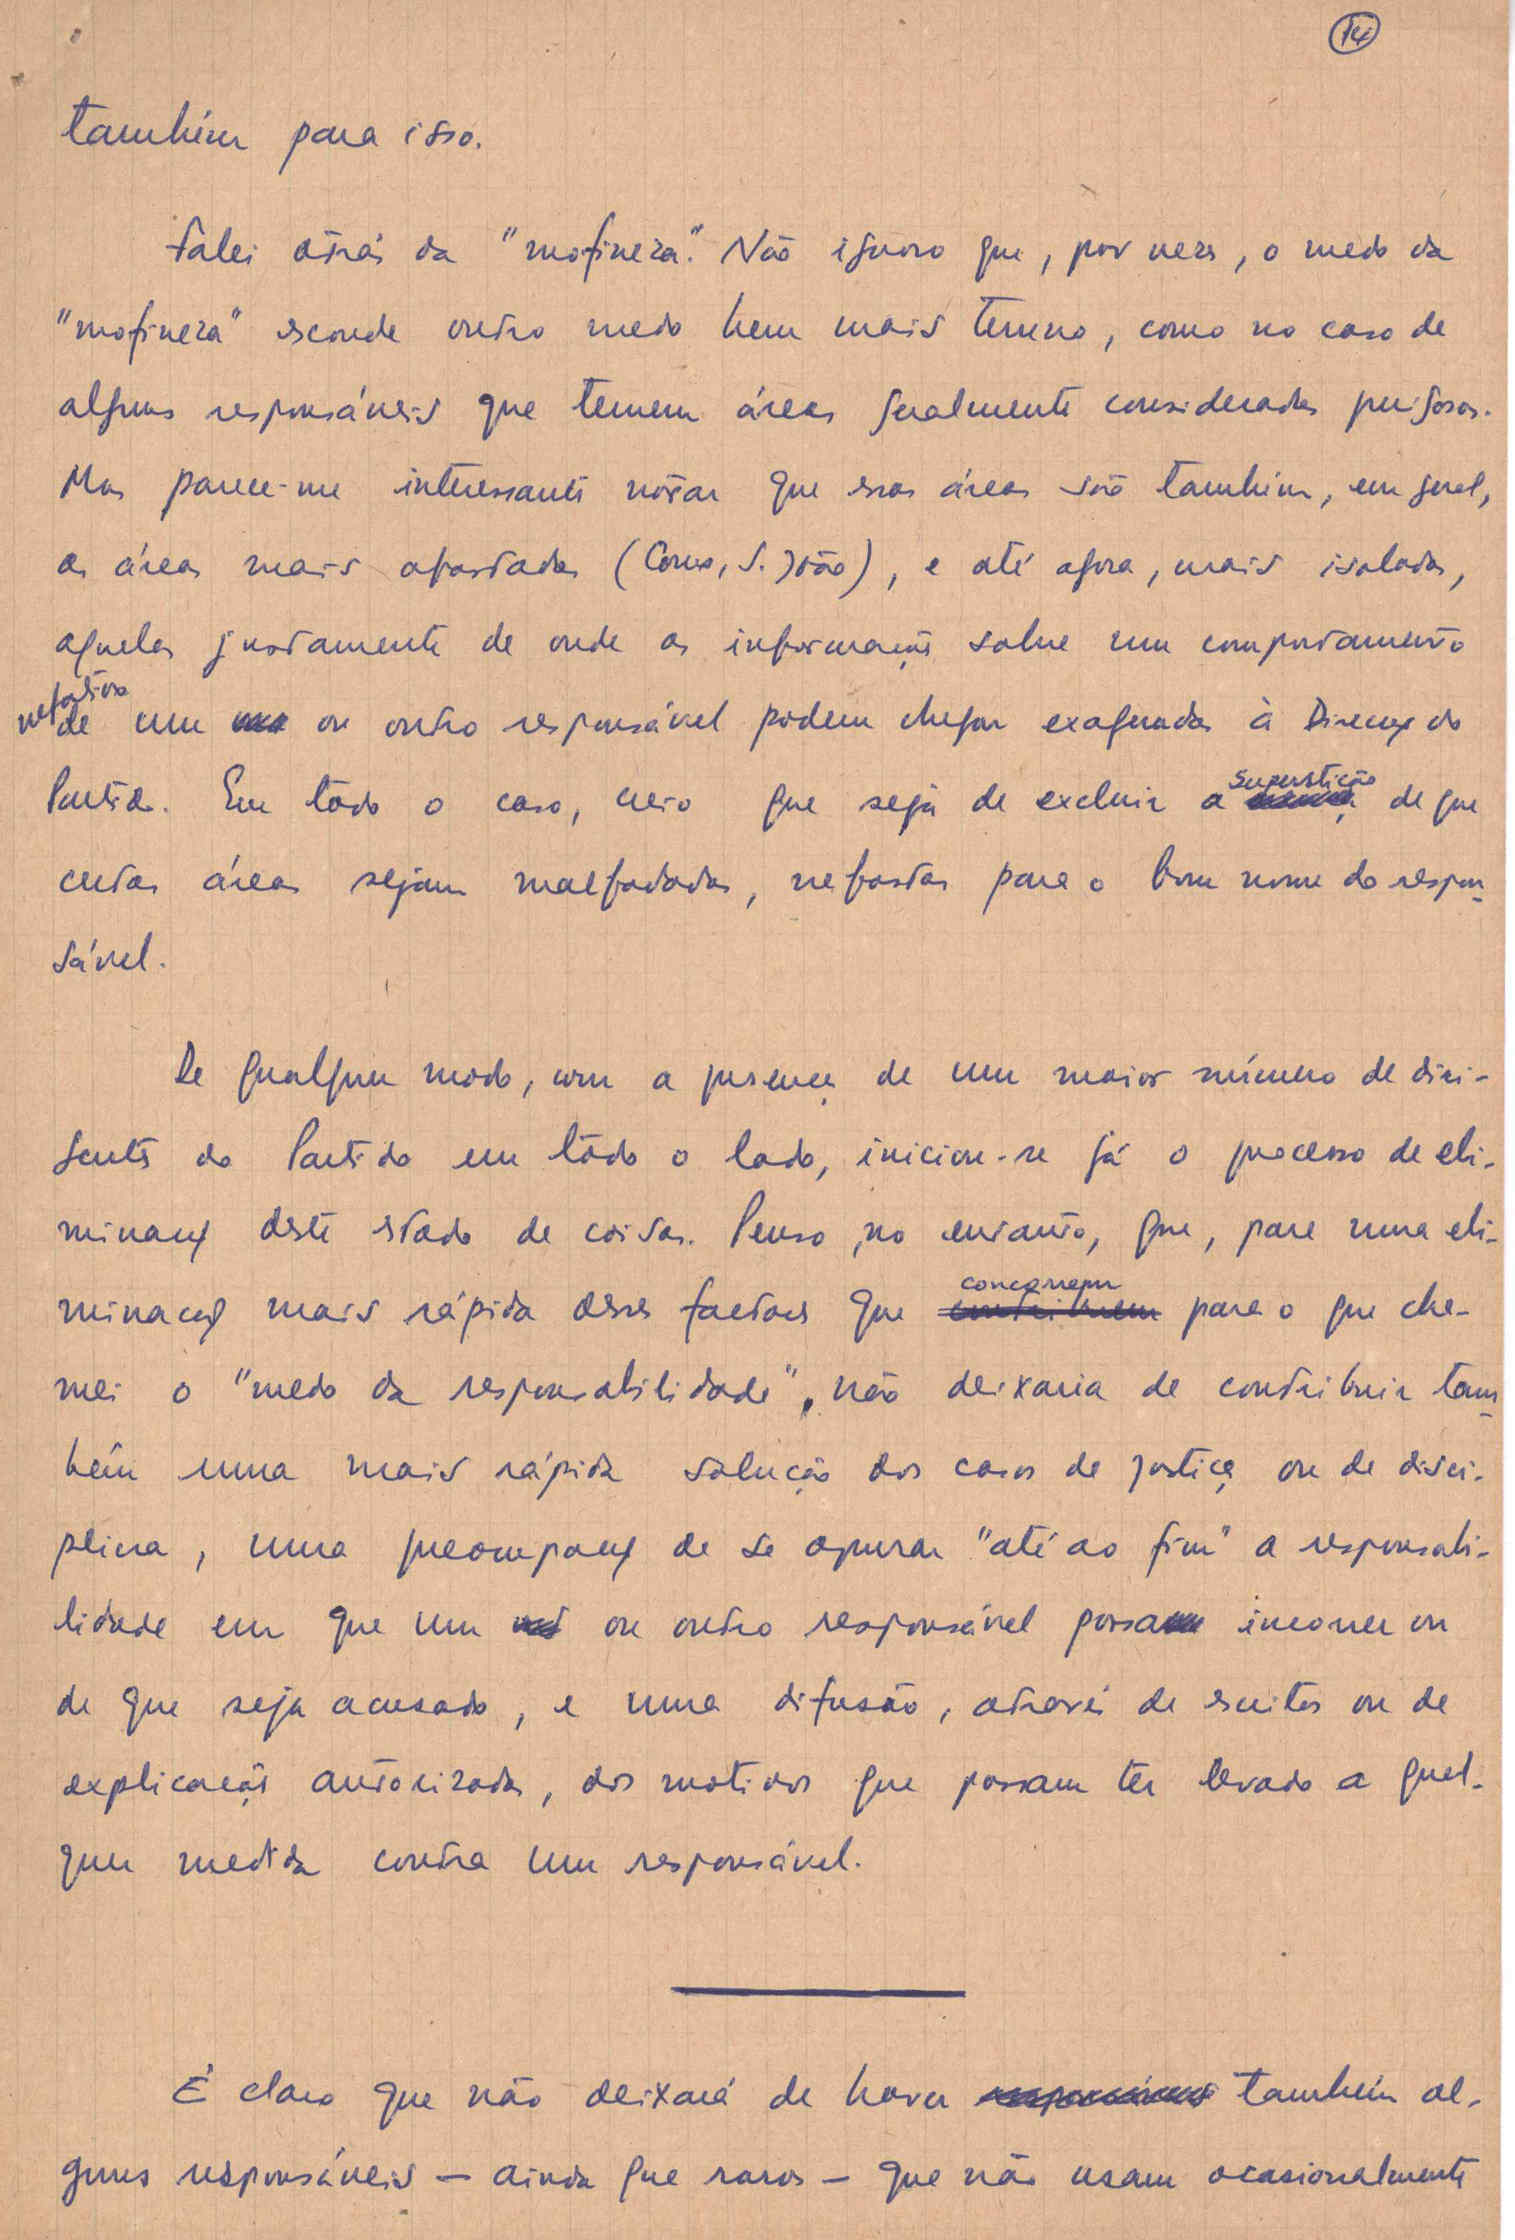 14
também para isso.
Falei atrás da "mofineza". Não ignoro que, por vezes, o medo da
"mofineza" esconde outro medo bem mais terreno, como no caso de
alguns responsáveis que temem áreas geralmente consideradas perigosas.
Mas parece-me interessante notar que essas áreas são também, em geral,
as áreas mais afastadas (Como, S. João), e até agora, mais isoladas,
aquelas justamente de onde as informações sobre um comportamento
negativo
de um ou outro responsável podem chegar exageradas à Direcção do
Partido. Em todo o caso, creio que seja de excluir a superstição de que
certas áreas sejam malfadadas, nefastas para o bom nome do respon-
sável.
De qualquer modo, com a presença de um maior número de diri-
gentes do Partido em todo o lado, iniciou-se já o processo de eli-
minação deste estado de coisas. Penso, no entanto, que, para uma eli-
minação mais rápida desses factores que concorrem para o que cha-
mei o "medo da responsabilidade", não deixaria de contribuir tam-
bém uma mais rápida solução dos casos de justiça ou de disci-
plina, uma preocupação de se apurar "até ao fim" a responsabi-
lidade em que um ou outro responsável possa incorrer ou
de que seja acusado, e uma difusão, através de escritos ou de
explicações autorizadas, dos motivos que possam ter levado a qual-
quer medida contra um responsável.
É claro que não deixará de haver também al-
guns responsáveis — ainda que raros — que não usam ocasionalmente